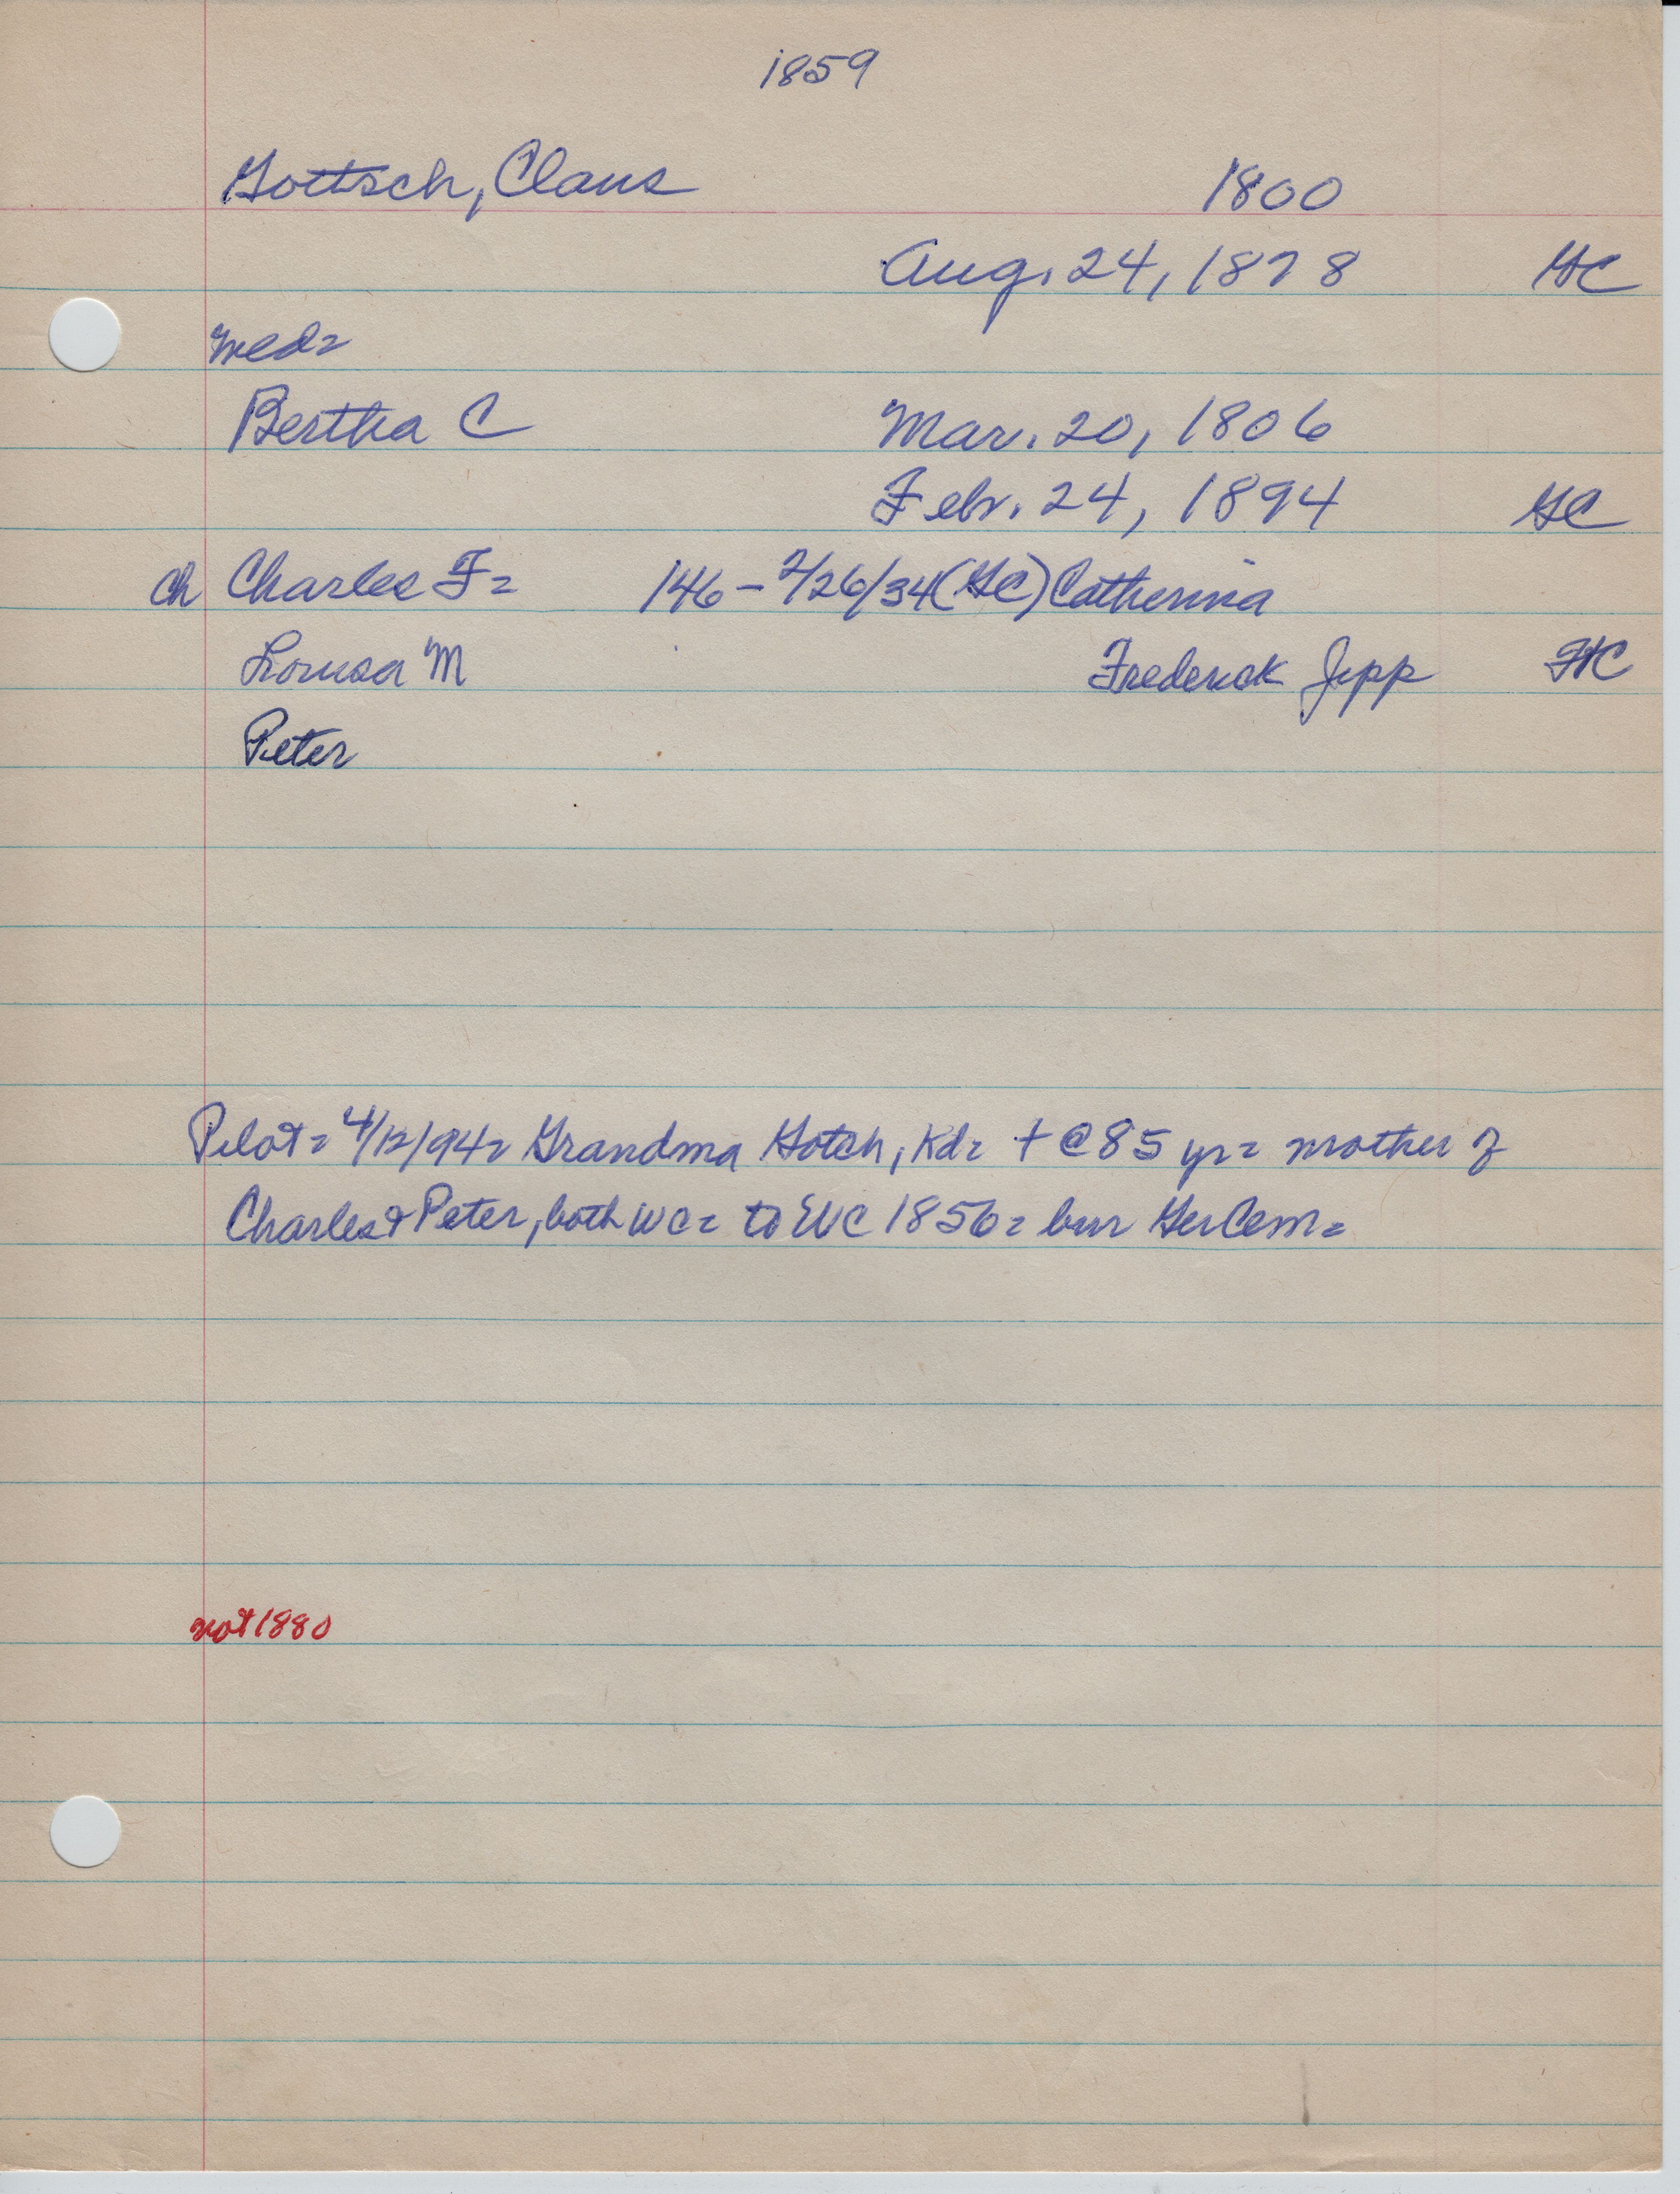 1859
Gottsch, Claus 1800
Aug. 24, 1878 GC
wed=
Bertha C Mar. 20, 1806
Febr. 24, 1894 GC
ch Charles F= 146 - 2/26/34 (GC) Catherina
Louisa M Frederick Jipp FHC
Peter
Pilot= 4/12/94= Grandma Gotch, Kd= + @ 85 yr= mother of
Charles & Peter, both WC= to WC 1856= bur Ger Cem=
not 1880